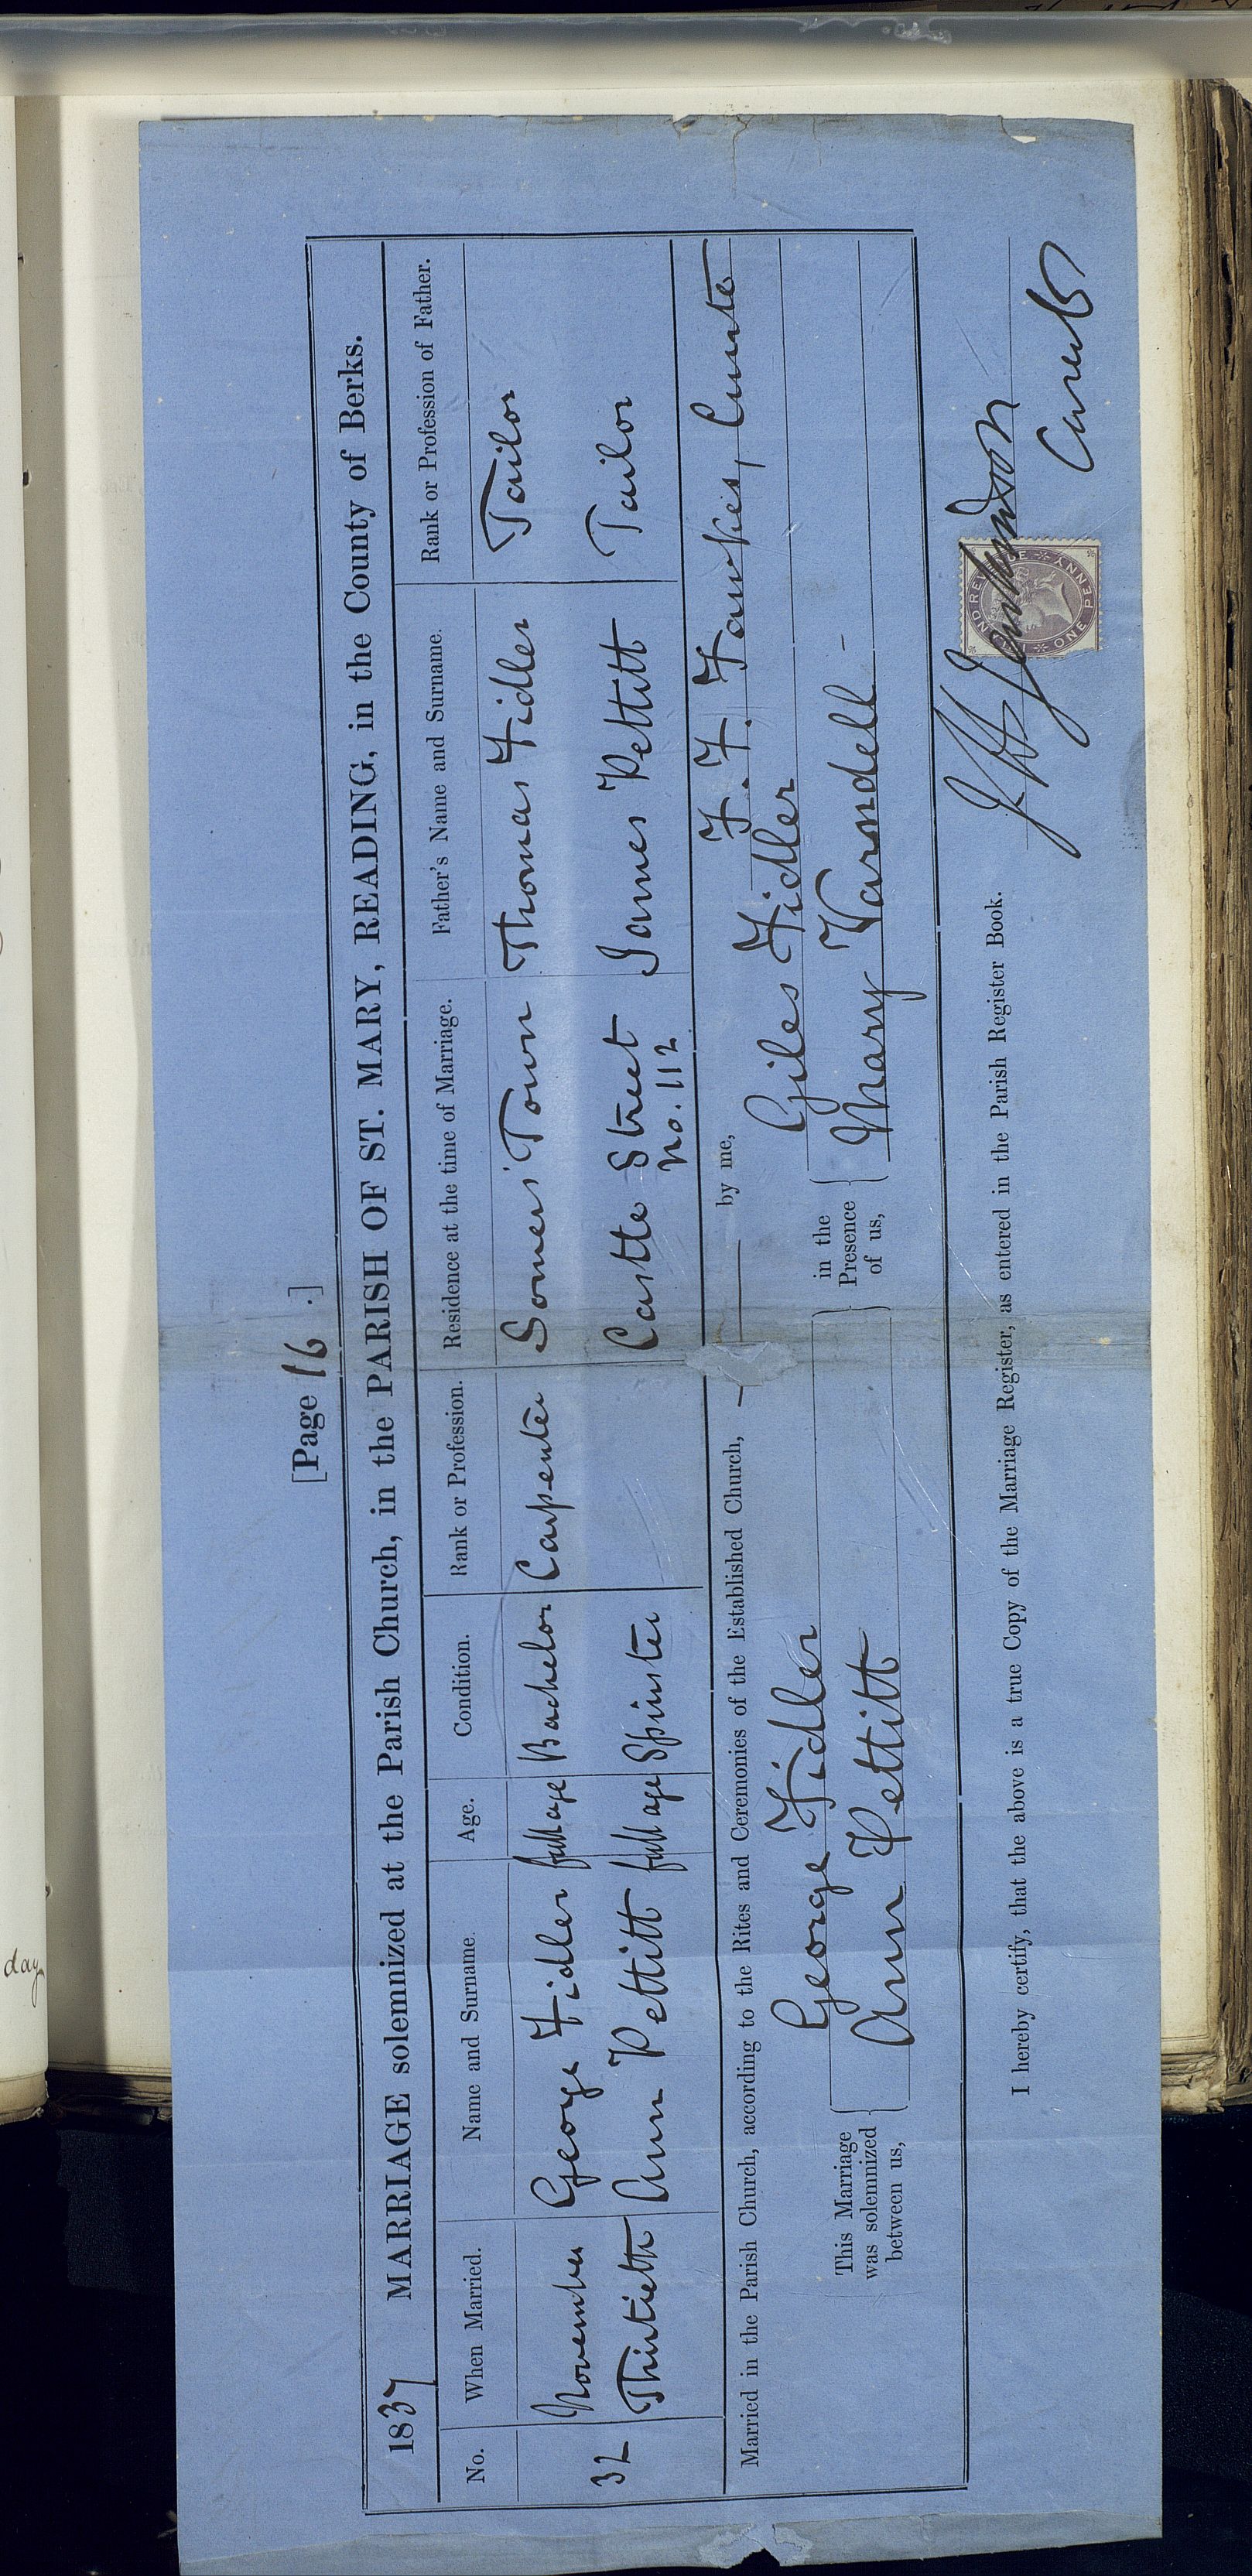 [Page 16.]
1837 MARRIAGE solemnized at the Parish Church, in the PARISH OF ST. MARY, READING, in the County of Berks.
No. When Married. Name and Surname. Age. Condition. Rank or Profession. Residence at the time of Marriage. Father's Name and Surname. Rank or Profession of Father.
November George Fidler full age Bachelor Carpenter Somers Town Thomas Fidler Tailor
32 Thirtieth Ann Pettitt full age Spinster Castle Street James Pettitt Tailor
No. 112
Married in the Parish Church, according to the Rites and Ceremonies of the Established Church, by me, F. F. Fawkes, Curate
This Marriage was solemnized between us,
George Fidler
Ann Pettitt
in the Presence of us,
Giles Fidler
Mary Varndell
I hereby certify, that the above is a true Copy of the Marriage Register, as entered in the Parish Register Book.
Curate
INLAND REVENUE
ONE PENNY
day